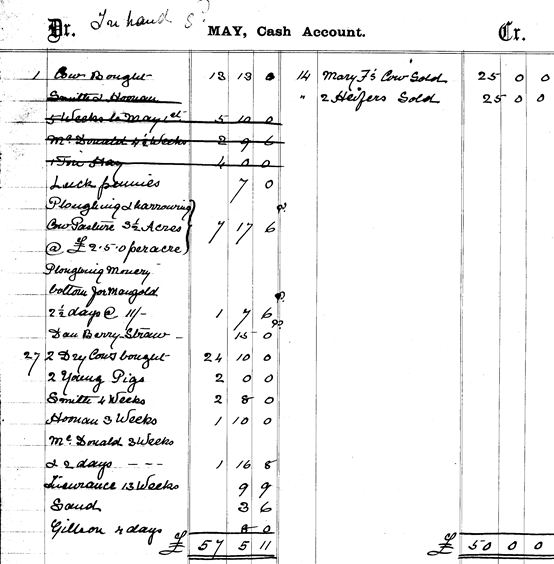 Dr. In hand MAY, Cash Account. Cr.
1 Cow Bought 13 13 0 14 Mary F's Cow Sold 25 0 0
Smith & Hoonan " 2 Heifers Sold 25 0 0
5 Weeks to May 1st 5 10 0
Mc Donald 4½ Weeks 2 9 6
1 Ton Hay 4 0 0
Luck pennies 7 0
Ploughing & harrowing
Cow Pasture 3½ Acres 7 17 6
@ £2.5.0 per acre
Ploughing
bottom for Mangold
2½ days @ 11/- 1 7 6
Dan Berry Straw - 15 0
27 2 Dry Cows bought 24 10 0
2 Young Pigs 2 0 0
Smith 4 Weeks 2 8 0
Hoonan 3 Weeks 1 10 0
Mc Donald 3 Weeks
& 2 days - - - 1 16 8
Insurance 13 Weeks 9 9
Sand 3 6
Gillson 4 days 8 0
£ 57 5 11 £ 50 0 0